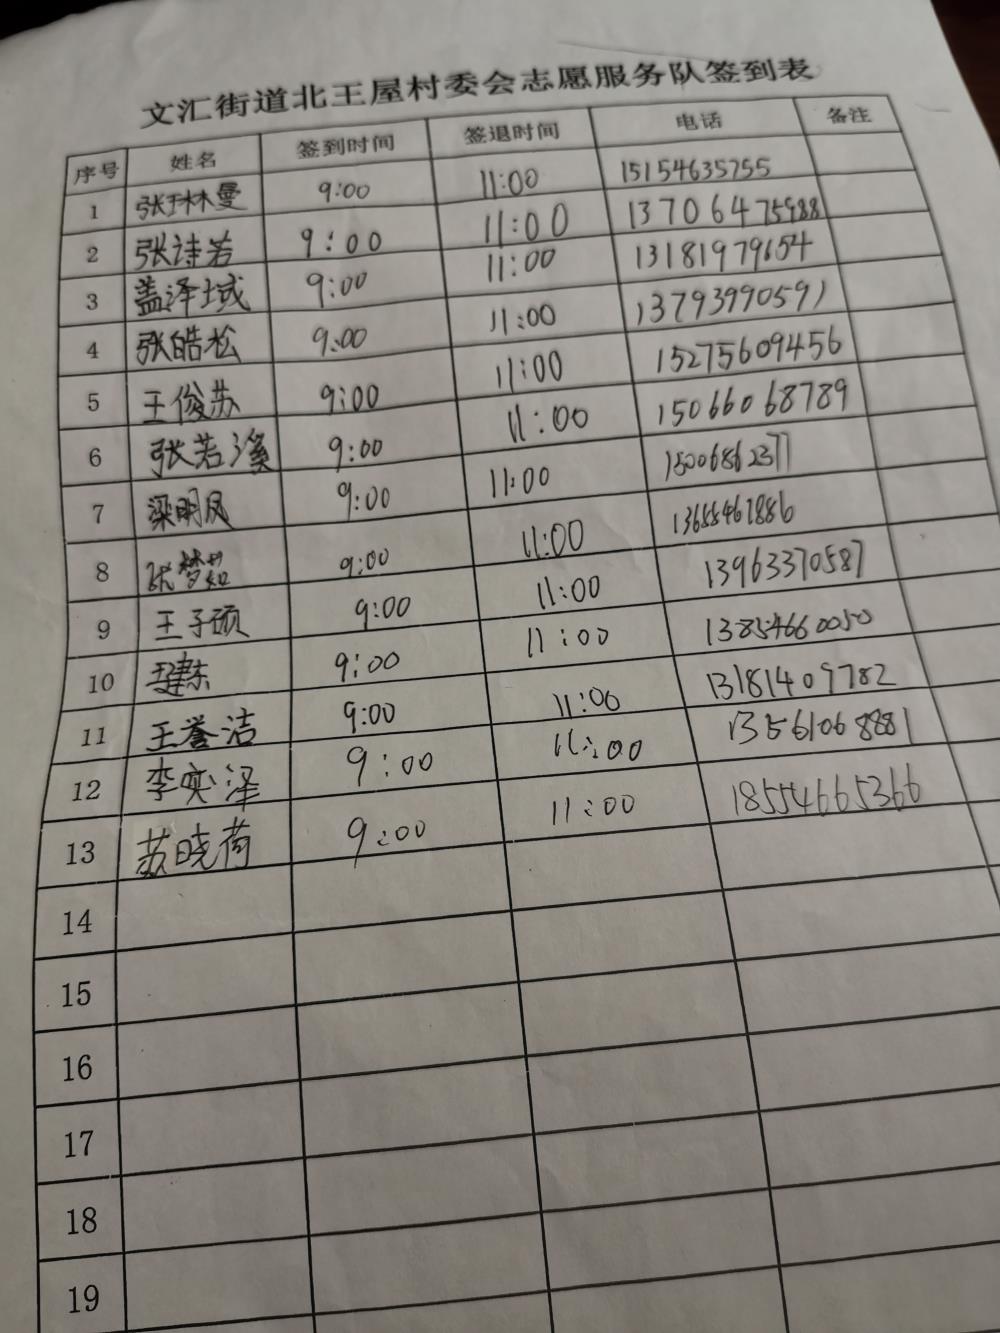 文汇街道北王屋村委会志愿服务队签到表
序号 姓名 签到时间 签退时间 电话 备注
1 张琳曼 9:00 11:00 15154635755
2 张诗若 9:00 11:00 13706475988
3 盖泽域 9:00 11:00 13181979654
4 张皓松 9:00 11:00 13793990591
5 王俊苏 9:00 11:00 15275609456
6 张若溪 9:00 11:00 15066068789
7 梁明凤 9:00 11:00 15006862377
8 张梦茹 9:00 11:00
9 王子硕 9:00 11:00 13963370587
10 9:00 11:00 13854660050
11 王誉洁 9:00 11:00 13181409782
12 李奕泽 9:00 11:00 13561068881
13 苏晓荷 9:00 11:00 18554665366
14
15
16
17
18
19